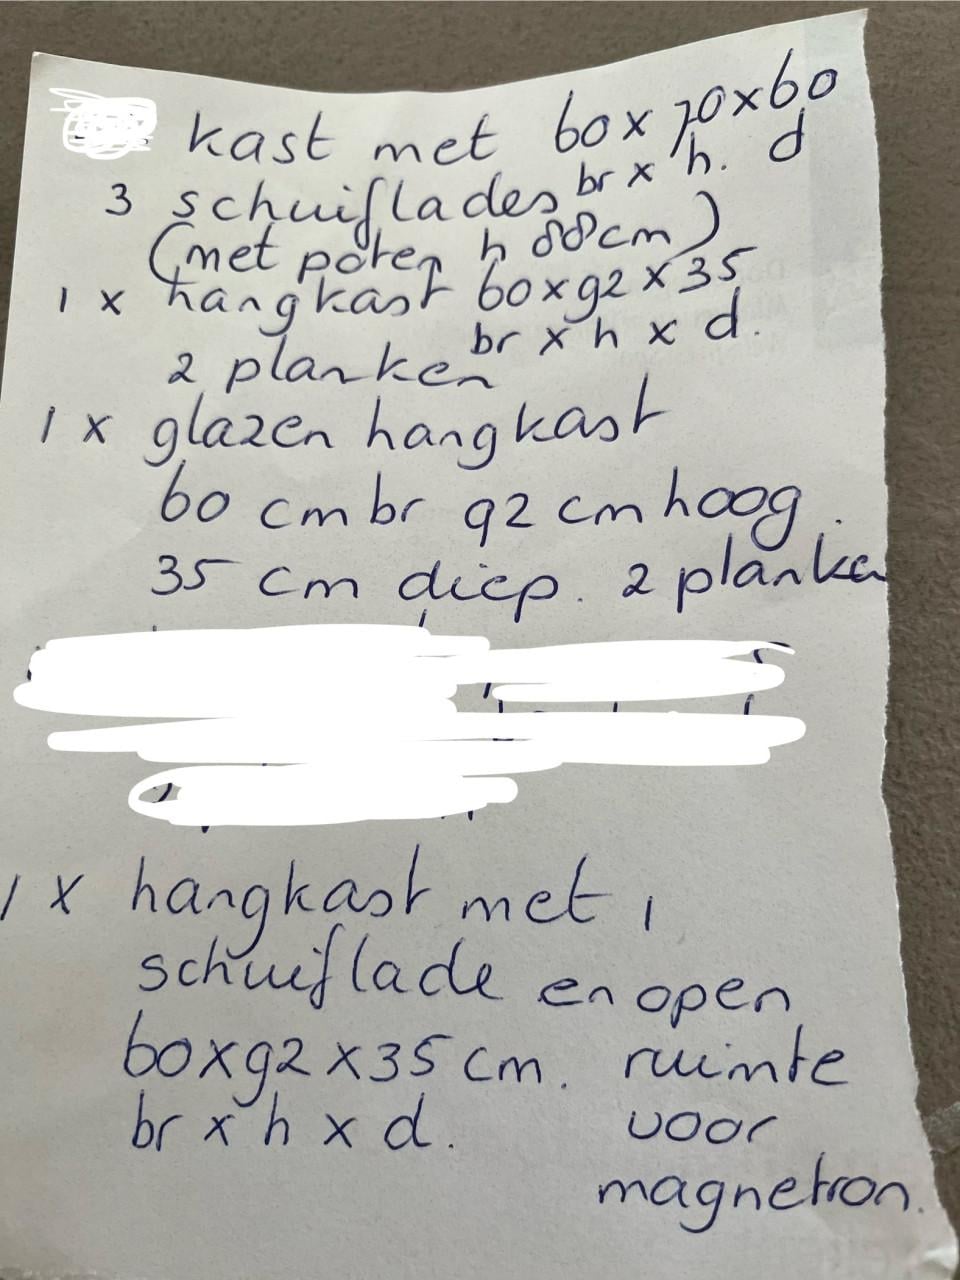 kast met 60 x 70 x 60
3 schuiflades br x h. d
(met poten h 88cm)
1 x hangkast 60 x 92 x 35
br x h x d.
2 planken
1 x glazen hangkast
60 cm br 92 cm hoog.
35 cm diep. 2 planken
1 x hangkast met 1
schuiflade en open
60x92 x 35 cm. ruimte
br x h x d. voor
magnetron.